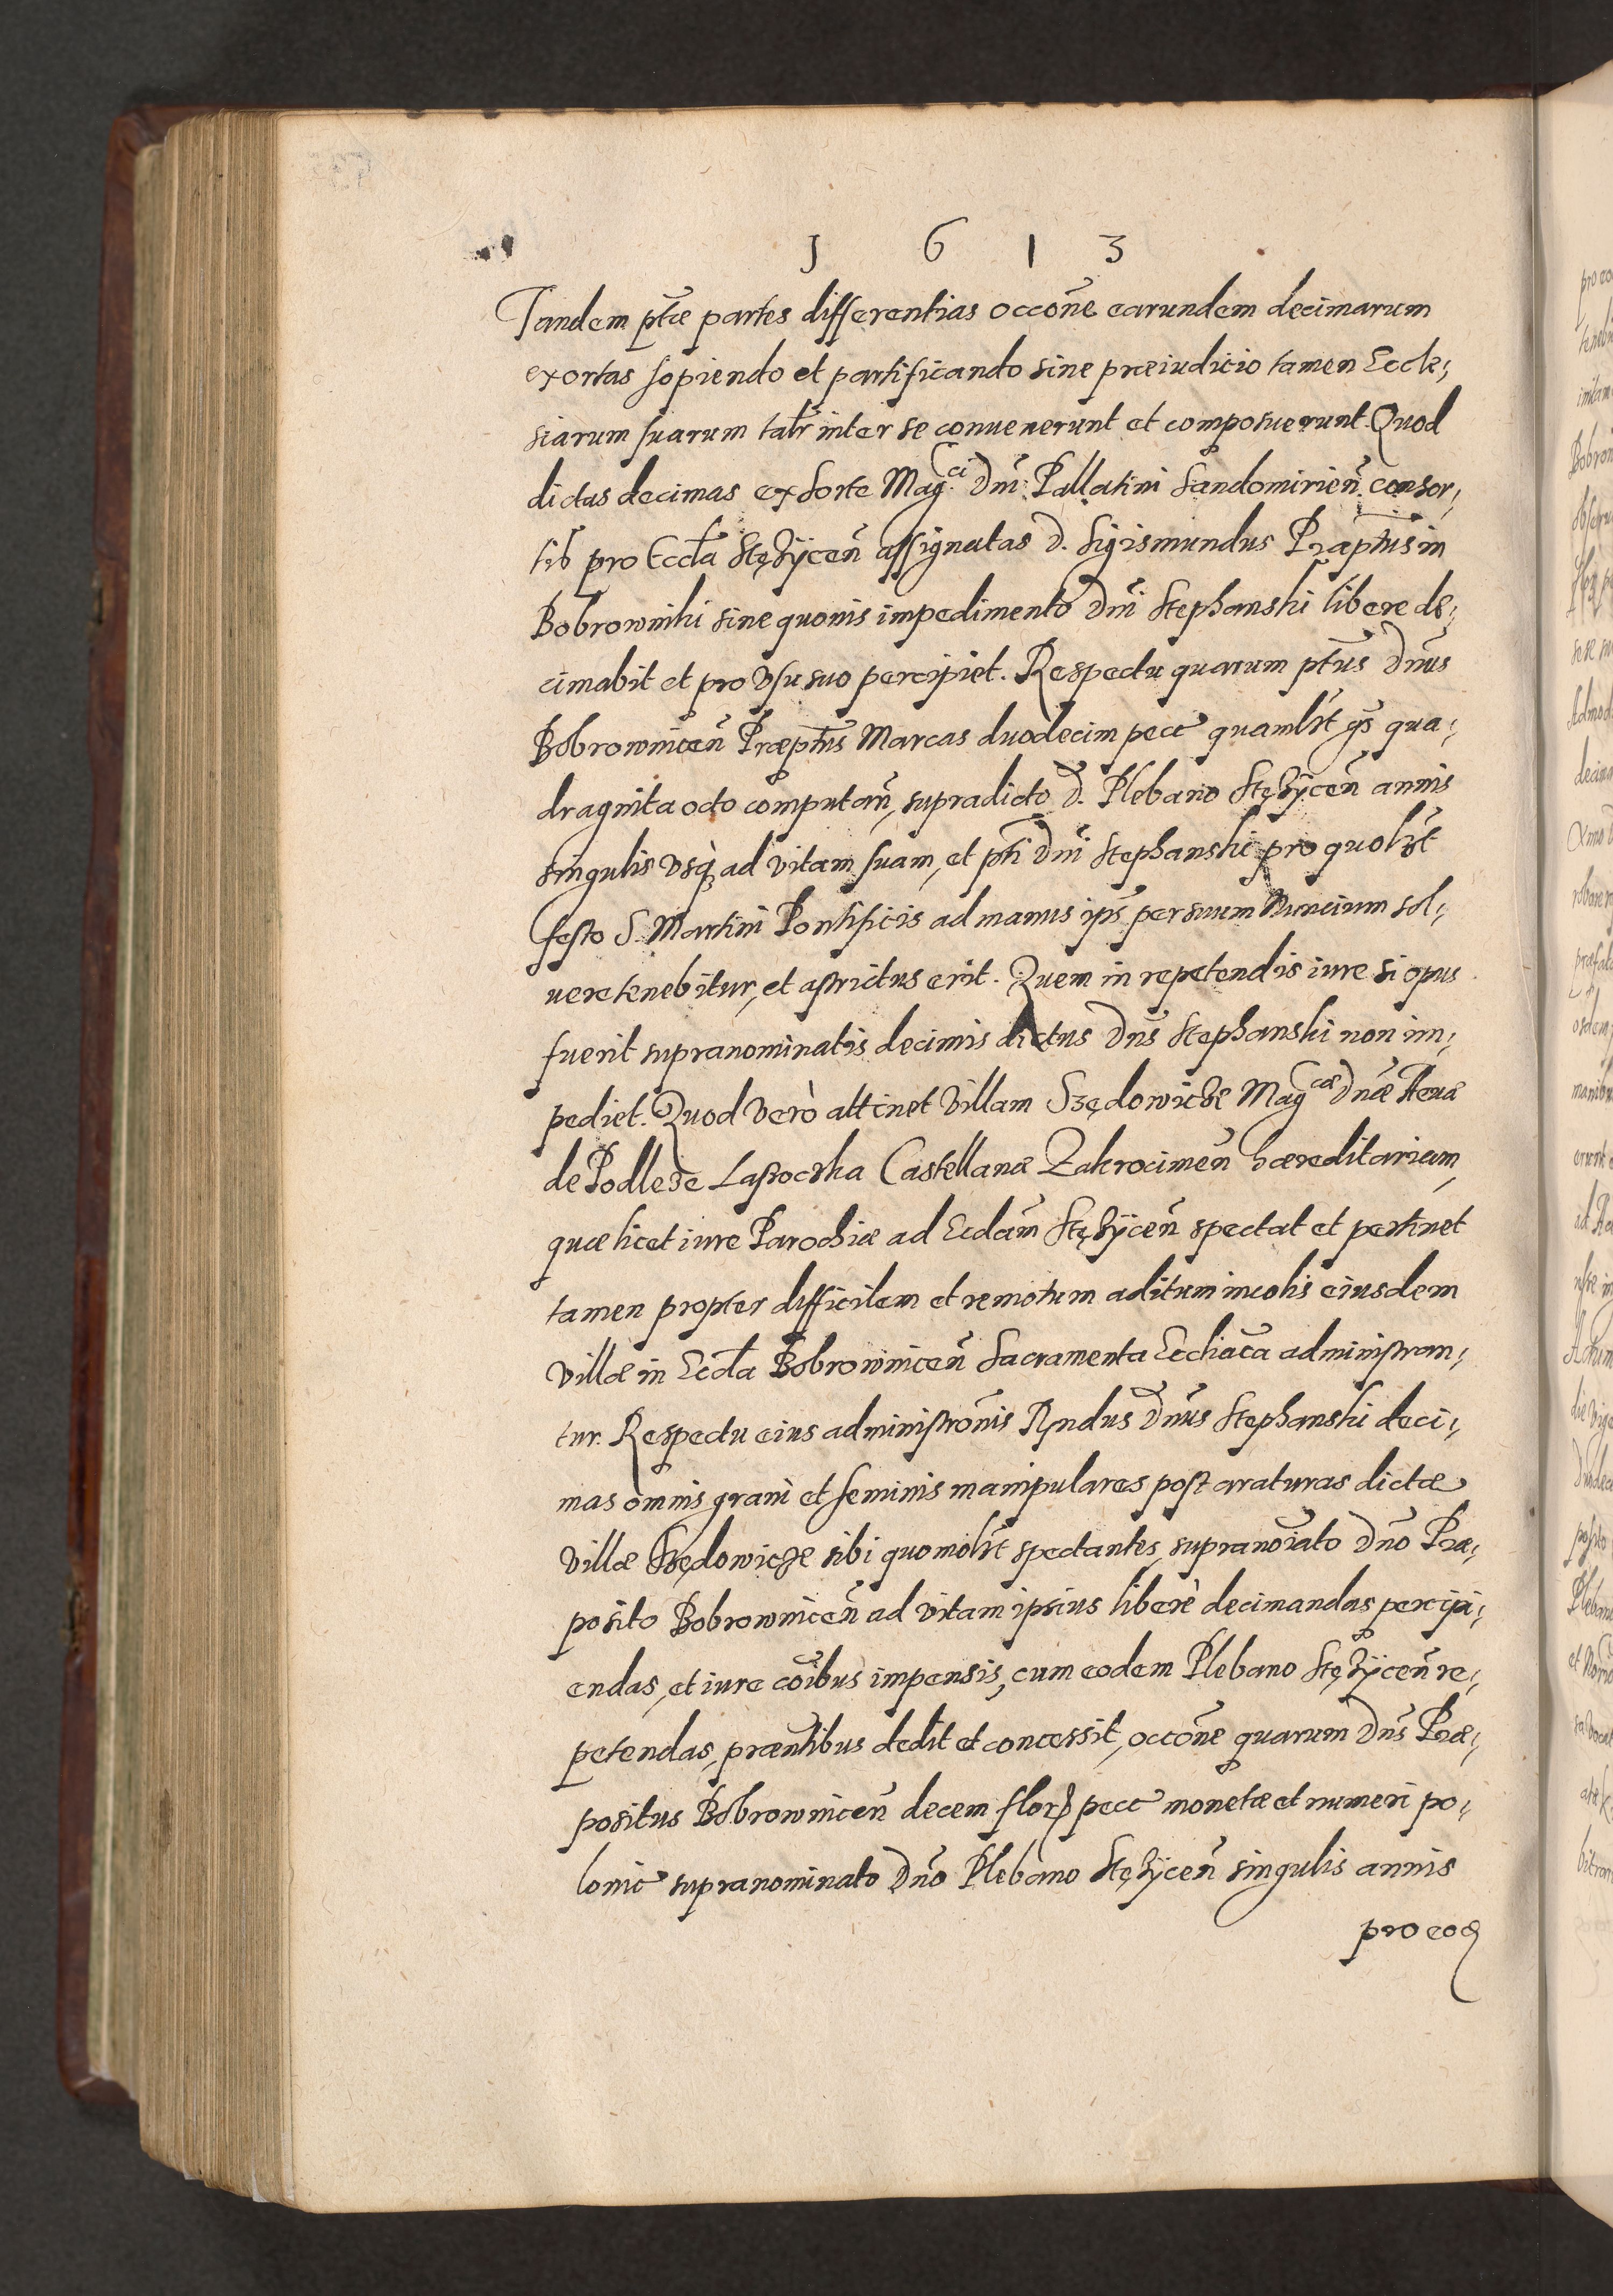 1613
Tandem ptæ partes differentias occõne earundem decimarum
exortas sopiendo et partificando sine præiudicio tamen Eccle,
siarum suarum talr inter se conuenerunt et composuerunt. Quod
dictas decimas ex sorte Mag:ci Dni Pallatini Sandomirien̄. consor,
tib pro Eccla Stężycen̄ assignatas D. Sigismundus Præptus in
Bobrowniki sine quouis impedimento Dni Stephanski libere de,
cimabit et pro Vsu suo percipiet. Respectu quarum ptus Dnus
Bobrownicen̄ Præptus Marcas duodecim pecc quamlbt gs qua,
draginta octo computan̄, supradicto D. Plebano Stężycen̄ annis
singulis Vsq ad Vitam suam, et pti Dni Stephanski pro quolbt
festo S. Martini Pontificis ad manus ips per suum Nuncium sol,
uere tenebitur, et astrictus erit. Quem in repetendis iure si opus
fuerit supranominatis decimis dictus Dns Stephanski non im,
pediet. Quod Verò attinet Villam Szędowicze Mag:cæ Dnæ Æuæ
de Podlesze Lastoczka Castellanæ Zakrocimen̄ hæreditariam,
quæ licet iure Parochiæ ad Ecclam Stężycen̄ spectat et pertinet
tamen propter difficilem et remotum aditum incolis eiusdem
Villæ in Eccla Bobrownicen̄ Sacramenta Ecchaca administran,
tur. Respectu eius administrõnis Rndus Dnus Stephanski deci,
mas omnis grani et seminis manipulares post araturas dictæ
Villæ Szędowicze sibi quomolbt spectantes, supranoiato Dno Præ,
posito Bobrownicen̄ ad Vitam ipsius liberè decimandas percipi,
endas, et iure cõibus impensis, cum eodem Plebano Stężycen̄ re,
petendas, præntibus dedit et concessit, occõne quarum Dns Præ,
positus Bobrownicen̄ decem flor pecc monetæ et numeri po,
lonic supranominato Dno Plebano Stężycen̄ singulis annis
pro eod